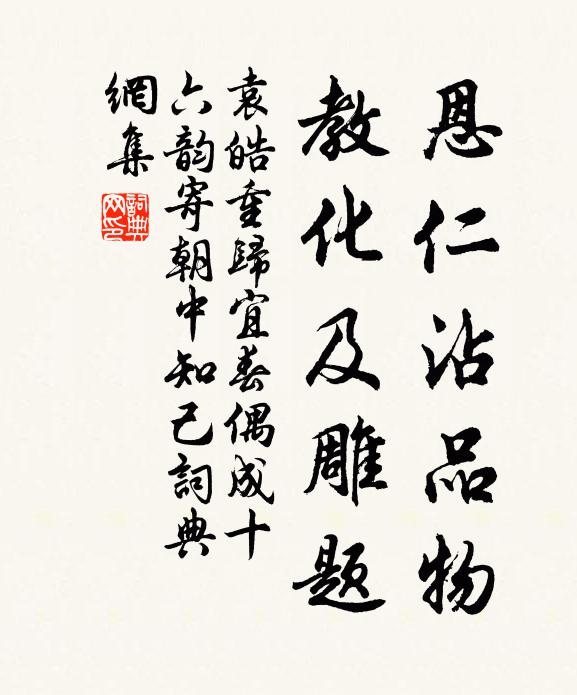 恩仁沾品物
教化及雕题
袁皓重歸宜春偶成十
六韵寄朝中知己詞典
網集
詞典网印